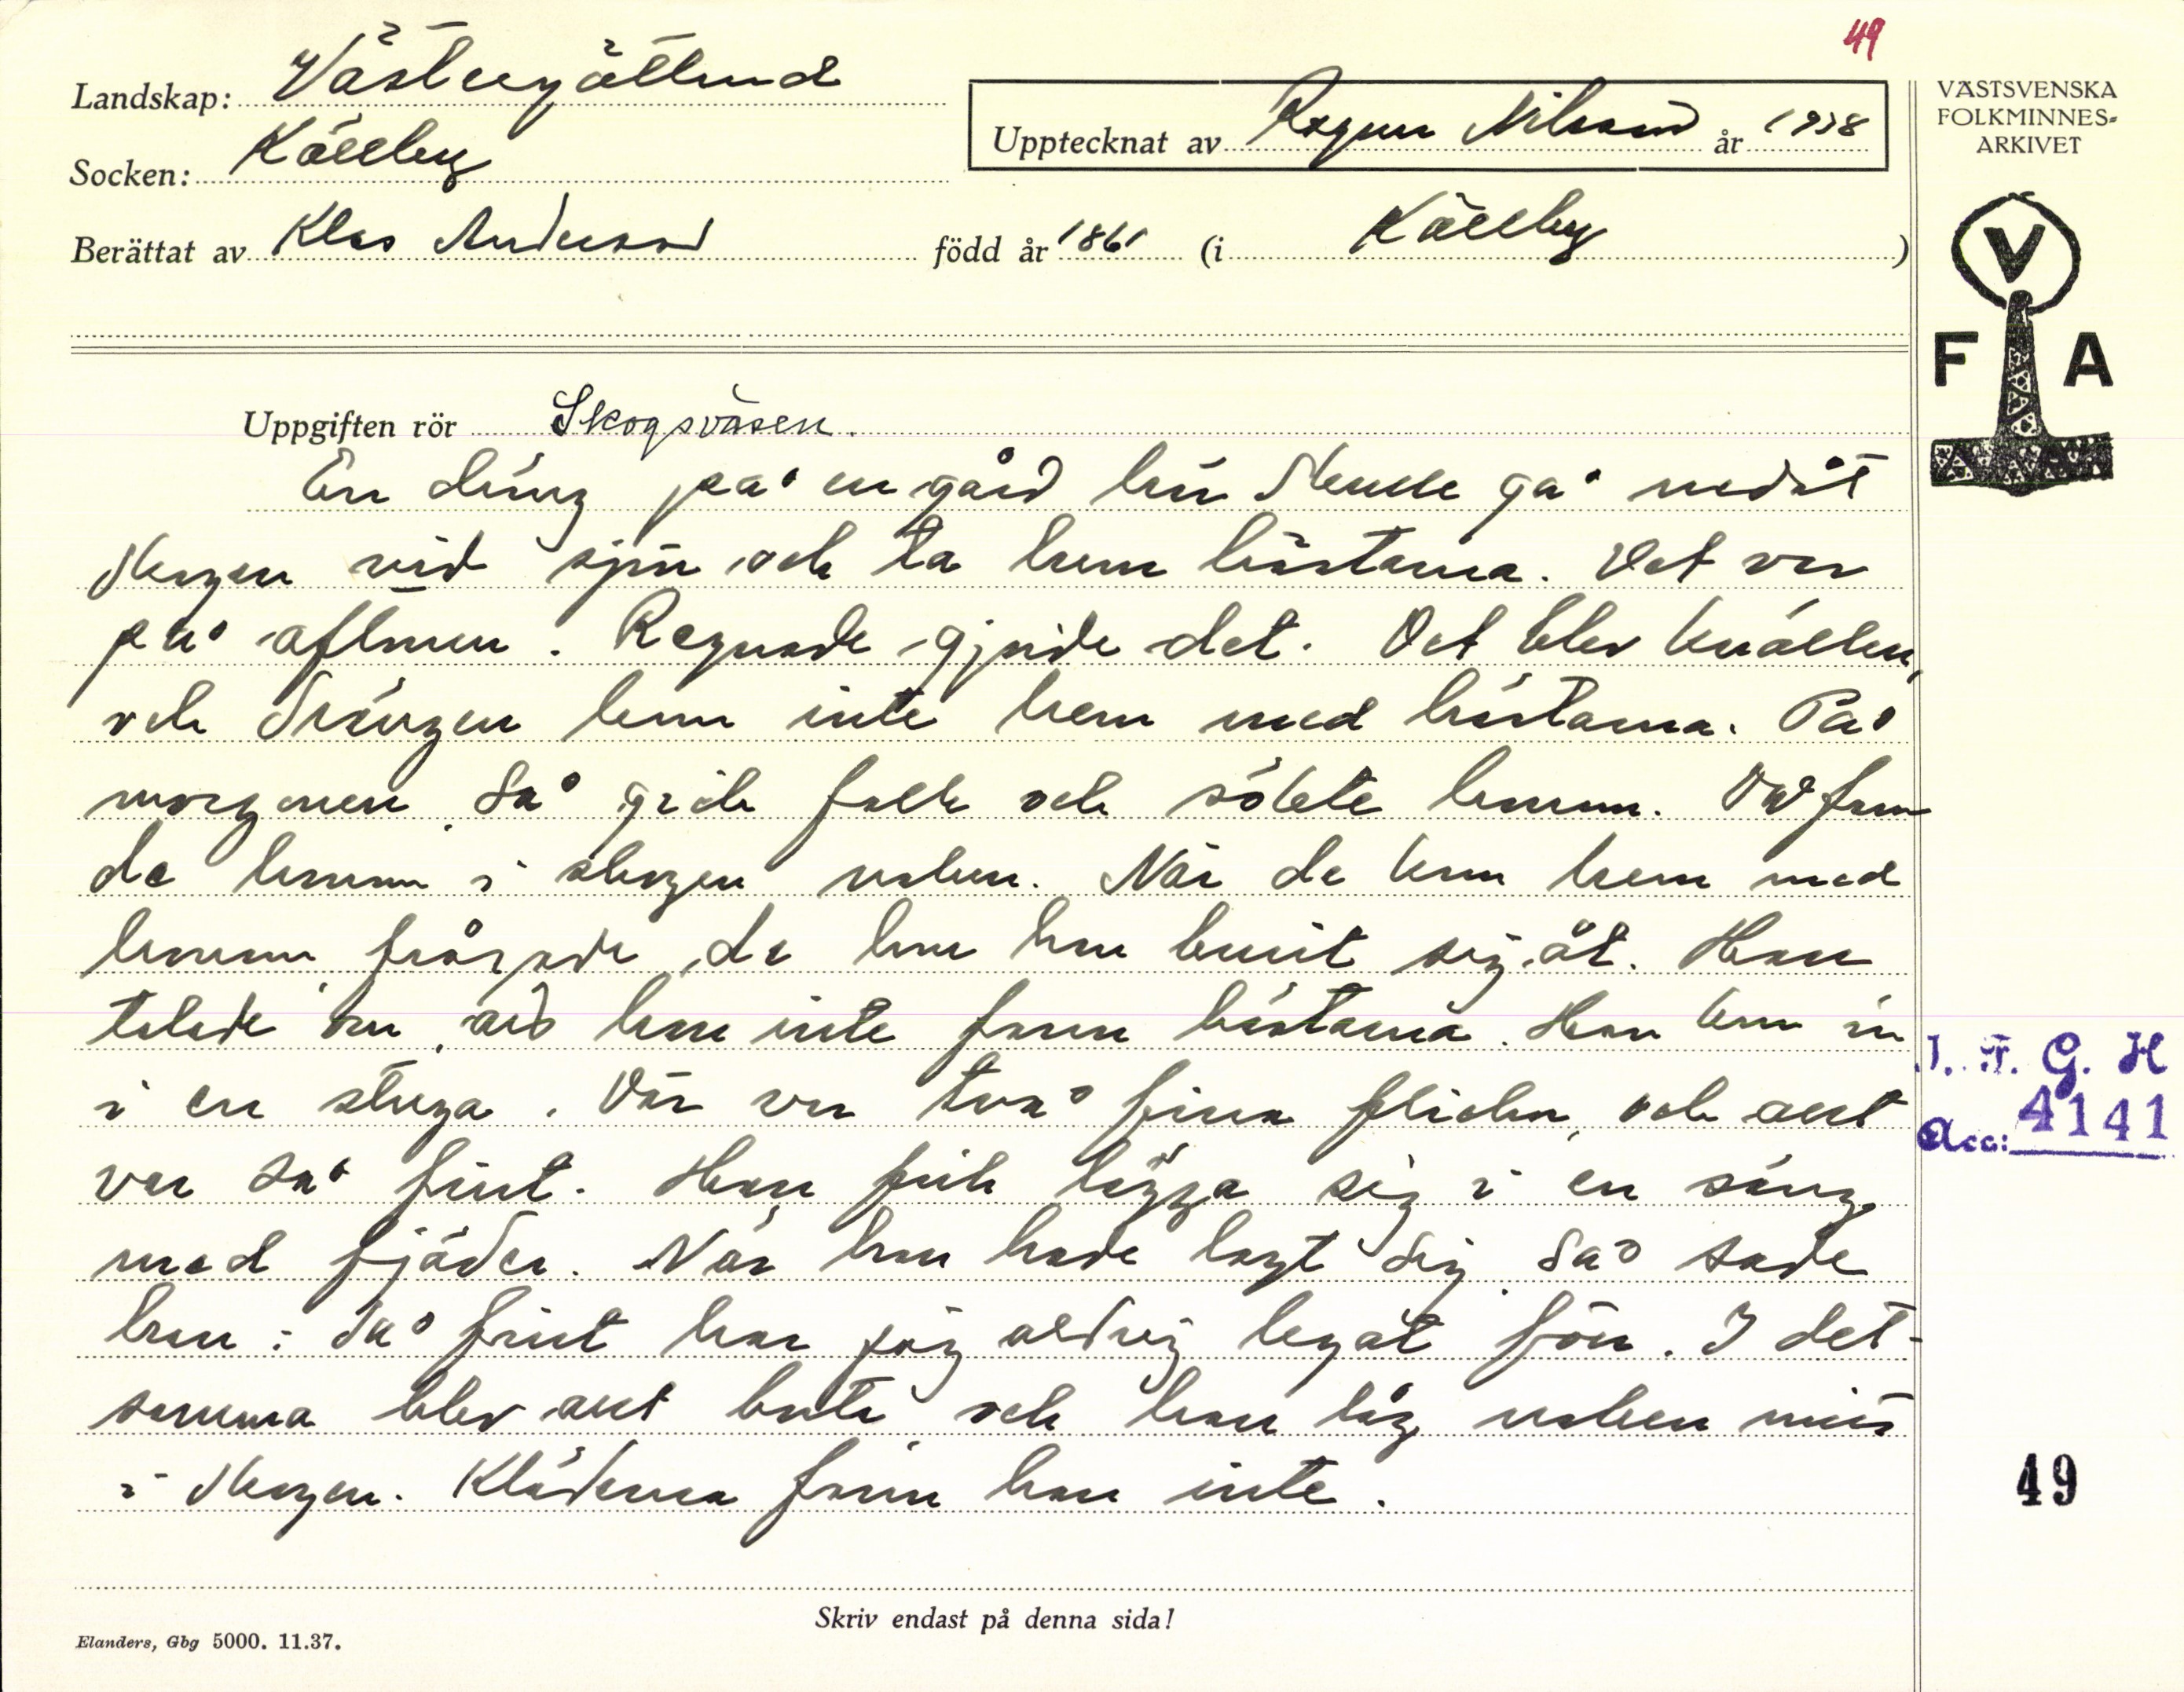 49
Landskap: Västergötland
Socken: Källby
Upptecknat av Ragnar Nilsson år 1938
Berättat av Klas Andersson född år 1861 (i Källby)
VÄSTSVENSKA
FOLKMINNES-
ARKIVET
V
F A
Uppgiften rör Skogsväsen.
En dräng på en gård här skulle gå nedåt
skogen vid sjön och ta hem hästarna. Det var
på aftonen. Regnade gjorde det. Det blev kvällen,
och drängen kom inte hem med hästarna. På
morgonen så gick folk och sökte honom. Då fann
de honom i skogen naken. När de kom hem med
honom, frågade de hur han burit sig åt. Han
talade om, att han inte fann hästarna. Han kom in
i en stuga. Där var två fina flickor, och allt
var så fint. Han fick lägga sig i en säng
med fjäder. När han hade lagt sig, så sade
han: Så fint har jag aldrig legat förr. I det-
samma blev allt borta, och han låg naken mitt
i skogen. Kläderna fann han inte.
I. F. G. H
Acc: 4141
49
Skriv endast på denna sida!
Elanders, Gbg 5000. 11.37.